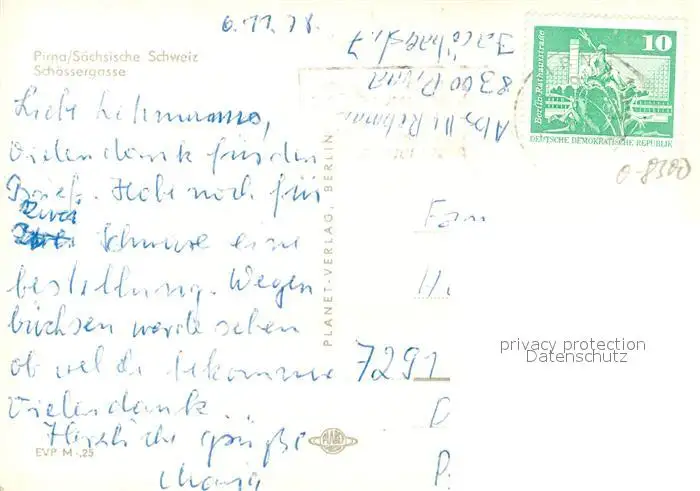 6.11.78.
Pirna/Sächsische Schweiz
Schössergasse
Liebe Lehmanns,
Vielen dank für den
Brief. Habe noch für
Zwei
Schnure eine
bestellung. Wegen
büchsen werde sehen
ob welche bekomme
Vielen dank..
Herzliche grüße
EVP M -,25
PLANET-VERLAG, BERLIN
PLANET
Abs. M.
8300 Pirna
10
Berlin-Rathausstraße
DEUTSCHE DEMOKRATISCHE REPUBLIK
0-8300
Fam
H.
7291
D
P
privacy protection
Datenschutz